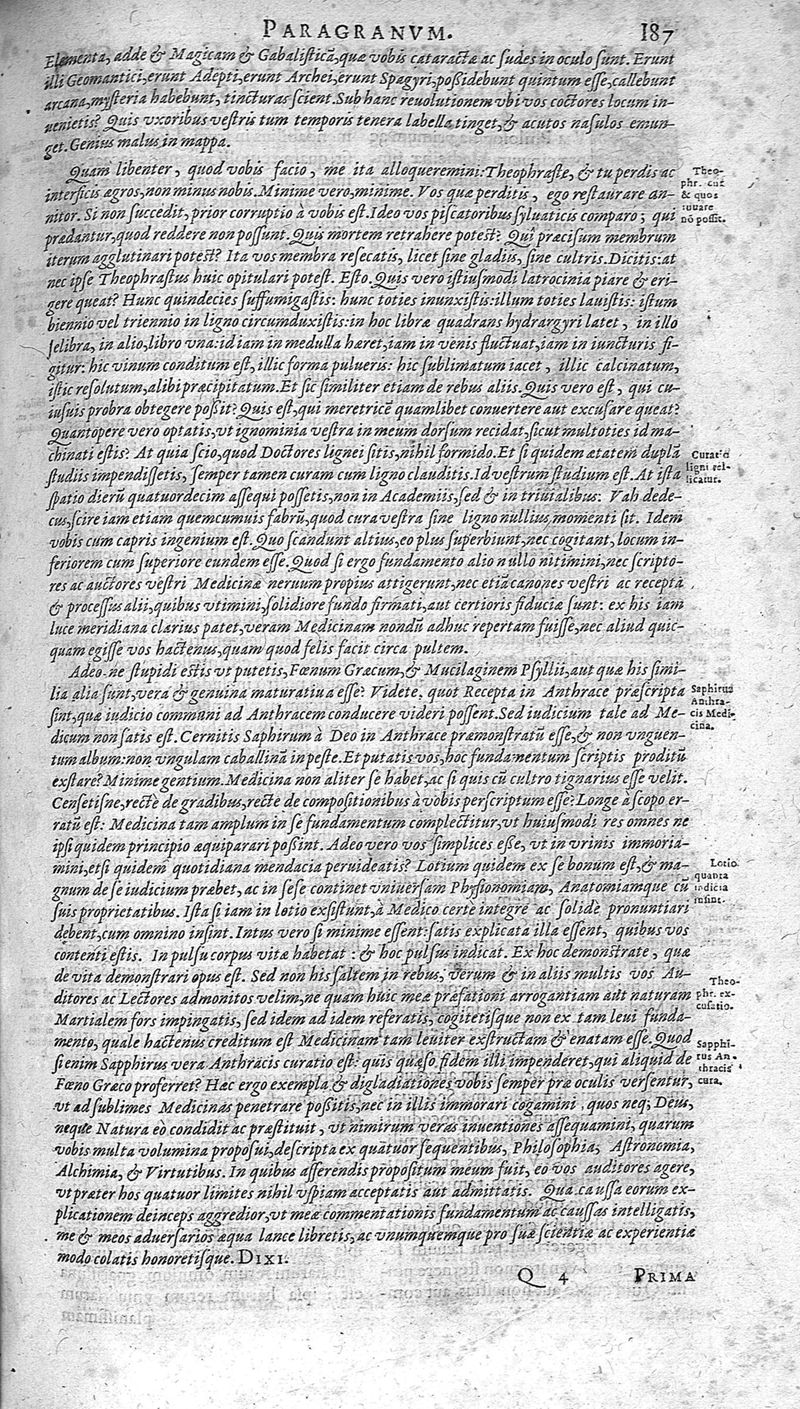 PARAGRANVM. 187
Elementa, adde & Magicam & Gabalisticā, quæ vobis cataractæ ac sudes in oculo sunt. Erunt
illi Geomantici, erunt Adepti, erunt Archei, erunt Spagyri, poßidebunt quintum esse, callebunt
arcana, mysteria habebunt, tincturas scient. Sub hanc reuolutionem vbi vos coctores locum in-
uenietis? Quis vxoribus vestris tum temporis tenera labella tinget, & acutos nasulos emun-
get. Genius malus in mappa.
Quam libenter, quod vobis facio, me ita alloqueremini: Theophraste, & tu perdis ac
interficis ægros, non minus nobis. Minime vero, minime. Vos quæ perditis, ego restaurare an-
nitor. Si non succedit, prior corruptio à vobis est. Ideo vos piscatoribus syluaticis comparo; qui
prædantur, quod reddere non possunt. Quis mortem retrahere potest? Qui præcisum membrum
iterum agglutinari potest? Ita vos membra resecatis, licet sine gladiis, sine cultris. Dicitis: at
nec ipse Theophrastus huic opitulari potest. Esto. Quis vero istiusmodi latrocinia piare & eri-
gere queat? Hunc quindecies suffumigastis: hunc toties inunxistis: illum toties lauistis: istum
biennio vel triennio in ligno circumduxistis: in hoc libræ quadrans hydrargyri latet, in illo
selibra, in alio, libro vna: id iam in medulla hæret, iam in venis fluctuat, iam in iuncturis fi-
gitur: hic vinum conditum est, illic forma pulueris: hic sublimatum iacet, illic calcinatum,
istic resolutum, alibi præcipitatum. Et sic similiter etiam de rebus aliis. Quis vero est, qui cu-
iusuis probra obtegere poßit? Quis est, qui meretricē quamlibet conuertere aut excusare queat?
Quantopere vero optatis, vt ignominia vestra in meum dorsum recidat, sicut multoties id ma-
chinati estis? At quia scio, quod Doctores lignei sitis, nihil formido. Et si quidem ætatem duplā
studiis impendissetis, semper tamen curam cum ligno clauditis. Id vestrum studium est. At ista
spatio dierū quatuordecim assequi possetis, non in Academiis, sed & in triuialibus. Vah dede-
cus, scire iam etiam quemcumuis fabrū, quod cura vestra sine ligno nullius momenti sit. Idem
vobis cum capris ingenium est. Quo scandunt altius, eo plus superbiunt, nec cogitant, locum in-
feriorem cum superiore eundem esse. Quod si ergo fundamento alio nullo nitimini, nec scripto-
res ac auctores vestri Medicinæ neruum propius attigerunt, nec etiā canones vestri ac recepta
& processus alii, quibus vtimini, solidiore fundo firmati, aut certioris fiduciæ sunt: ex his iam
luce meridiana clarius patet, veram Medicinam nondū adhuc repertam fuisse, nec aliud quic-
quam egisse vos hactenus, quam quod felis facit circa pultem.
Adeo-ne stupidi estis vt putetis, Fœnum Græcum, & Mucilaginem Psyllii, aut quæ his simi-
lia alia sunt, vera & genuina maturatiua esse? Videte, quot Recepta in Anthrace præscripta
sint, quæ iudicio communi ad Anthracem conducere videri possent. Sed iudicium tale ad Me-
dicum non satis est. Cernitis Saphirum à Deo in Anthrace præmonstratū esse, & non vnguen-
tum album: non vngulam caballinā in peste. Et putatis vos, hoc fundamentum scriptis proditū
exstare? Minime gentium. Medicina non aliter se habet, ac si quis cū cultro tignarius esse velit.
Censetisne, rectè de gradibus, recte de compositionibus à vobis perscriptum esse? Longe à scopo er-
ratū est: Medicina tam amplum in se fundamentum complectitur, vt huiusmodi res omnes ne
ipsi quidem principio æquiparari poßint. Adeo vero vos simplices eße, vt in vrinis immoria-
mini, etsi quidem quotidiana mendacia peruideatis? Lotium quidem ex se bonum est, & ma-
gnum de se iudicium præbet, ac in sese continet vniuersam Physionomiam, Anatomiamque cū
suis proprietatibus. Ista si iam in lotio exsistunt, à Medico certe integre ac solide pronuntiari
debent, cum omnino insint. Intus vero si minime essent: satis explicata illa essent, quibus vos
contenti estis. In pulsu corpus vitæ habetat: & hoc pulsus indicat. Ex hoc demonstrate, quæ
de vita demonstrari opus est. Sed non his saltem in rebus, verum & in aliis multis vos Au-
ditores ac Lectores admonitos velim, ne quam huic meæ præfationi arrogantiam aut naturam
Martialem fors impingatis, sed idem ad idem referatis, cogitetisque non ex tam leui funda-
mento, quale hactenus creditum est Medicinam tam leuiter exstructam & enatam esse. Quod
si enim Sapphirus vera Anthracis curatio est: quis quæso fidem illi impenderet, qui aliquid de
Fœno Græco proferret? Hæc ergo exempla & digladiationes vobis semper præ oculis versentur,
vt ad sublimes Medicinas penetrare poßitis, nec in illis immorari cogamini, quos neq; Deus,
neque Natura eò condidit ac præstituit, vt nimirum veras inuentiones assequamini, quarum
vobis multa volumina proposui, descripta ex quatuor sequentibus, Philosophia, Astronomia,
Alchimia, & Virtutibus. In quibus asserendis propositum meum fuit, eo vos auditores agere,
vt præter hos quatuor limites nihil vspiam acceptatis aut admittatis. Qua caussa eorum ex-
plicationem deinceps aggredior, vt meæ commentationis fundamentum ac caussas intelligatis,
me & meos aduersarios æqua lance libretis, ac vnumquemque pro suæ scientiæ ac experientiæ
modo colatis honoretisque. DIXI.
Q 4 PRIMA
Theo-
phr. cur
& quos
iuuare
nō possit.
Curatio
ligni rel-
licatur.
Saphirus
Anthra-
cis Medi-
cina.
Lotio
quanta
iudicia
insint.
Theo-
phr. ex-
cusatio.
Sapphi-
rus An-
thracis
cura.